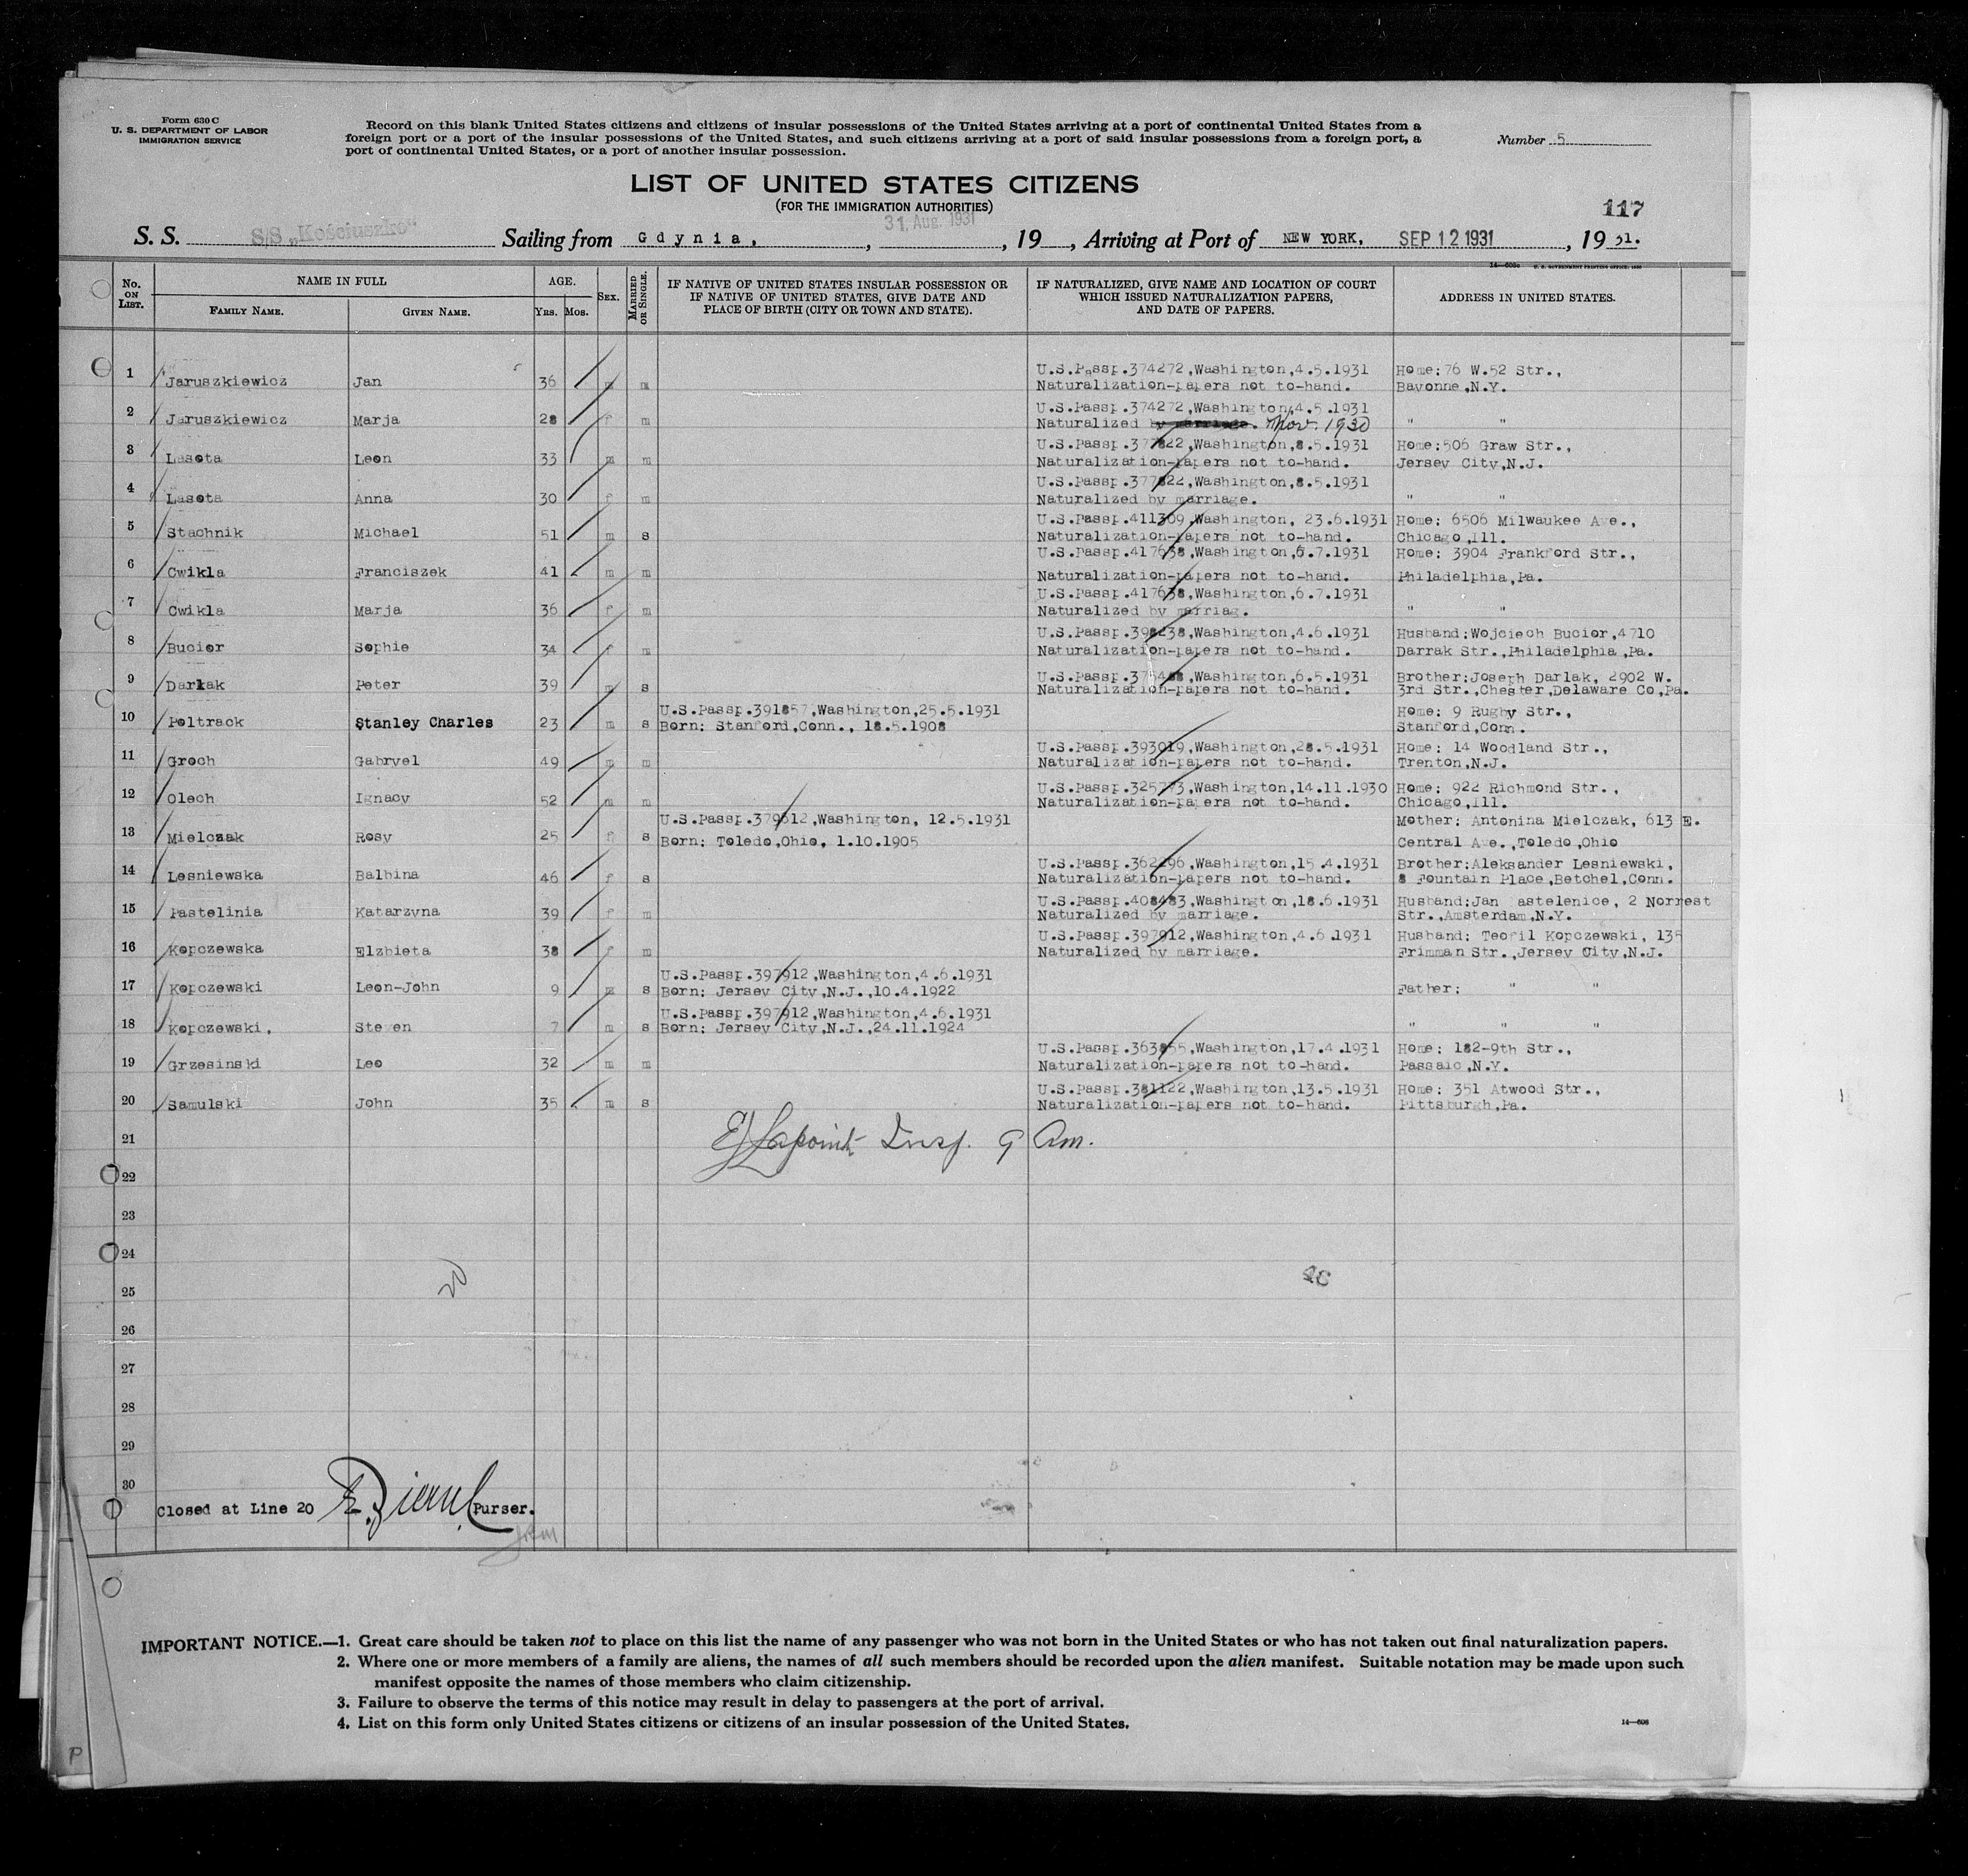 Form 630 C
U. S. DEPARTMENT OF LABOR
IMMIGRATION SERVICE
Record on this blank United States citizens and citizens of insular possessions of the United States arriving at a port of continental United States from a
foreign port or a port of the insular possessions of the United States, and such citizens arriving at a port of said insular possessions from a foreign port, a
port of continental United States, or a port of another insular possession.
Number 5
LIST OF UNITED STATES CITIZENS
(FOR THE IMMIGRATION AUTHORITIES)
117
S. S. S/S „Kościuszko" Sailing from Gdynia, , 31. Aug. 1931 , 19 , Arriving at Port of NEW YORK, SEP 12 1931 , 19 31.
No. ON LIST.
NAME IN FULL
FAMILY NAME.
GIVEN NAME.
AGE.
YRS. MOS.
SEX.
MARRIED OR SINGLE.
IF NATIVE OF UNITED STATES INSULAR POSSESSION OR
IF NATIVE OF UNITED STATES, GIVE DATE AND
PLACE OF BIRTH (CITY OR TOWN AND STATE).
IF NATURALIZED, GIVE NAME AND LOCATION OF COURT
WHICH ISSUED NATURALIZATION PAPERS,
AND DATE OF PAPERS.
ADDRESS IN UNITED STATES.
U.S.Passp.374272,Washington,4.5.1931 Home:76 W.52 Str.,
1 Jaruszkiewicz Jan 36 m m Naturalization-papers not to-hand. Bayonne,N.Y.
U.S.Passp.374272,Washington,4.5.1931
2 Jaruszkiewicz Marja 28 f m Naturalized by marriage. Nov. 1930 " "
U.S.Passp.377822,Washington,8.5.1931 Home:506 Graw Str.,
3 Lasota Leon 33 m m Naturalization-papers not to-hand. Jersey City,N.J.
U.S.Passp.377822,Washington,8.5.1931
4 Lasota Anna 30 f m Naturalized by marriage. " "
U.S.Passp.411309,Washington, 23.6.1931 Home: 6506 Milwaukee Ave.,
5 Stachnik Michael 51 m s Naturalization-papers not to-hand. Chicago,Ill.
U.S.Passp.417638,Washington,6.7.1931 Home: 3904 Frankford Str.,
6 Cwikla Franciszek 41 m m Naturalization-papers not to-hand. Philadelphia,Pa.
U.S.Passp.417638,Washington,6.7.1931
7 Cwikla Marja 36 f m Naturalized by marriag. " "
U.S.Passp.398238,Washington,4.6.1931 Husband:Wojciech Bucior,4710
8 Bucior Sophie 34 f m Naturalization-papers not to-hand. Darrak Str.,Philadelphia,Pa.
U.S.Passp. ,Washington,6.5.1931 Brother:Joseph Darlak, 2902 W.
9 Darlak Peter 39 m s Naturalization-papers not to-hand. 3rd Str.,Chester,Delaware Co,Pa.
U.S.Passp.391857,Washington,25.5.1931 Home: 9 Rugby Str.,
10 Poltrack Stanley Charles 23 m s Born: Stanford,Conn., 18.5.1908 Stanford,Conn.
U.S.Passp.393019,Washington,28.5.1931 Home: 14 Woodland Str.,
11 Groch Gabryel 49 m m Naturalization-papers not to-hand. Trenton,N.J.
U.S.Passp.325773,Washington,14.11.1930 Home: 922 Richmond Str.,
12 Olech Ignacy 52 m m Naturalization-papers not to-hand. Chicago,Ill.
U.S.Passp.379612,Washington, 12.5.1931 Mother: Antonina Mielczak, 613 E.
13 Mielczak Rosy 25 f s Born: Toledo,Ohio, 1.10.1905 Central Ave.,Toledo,Ohio
U.S.Passp.362296,Washington,15.4.1931 Brother:Aleksander Lesniewski,
14 Lesniewska Balbina 46 f s Naturalization-papers not to-hand. 8 Fountain Place,Betchel,Conn.
U.S.Passp.408483,Washington,18.6.1931 Husband:Jan astelenice, 2 Norrest
15 Pastelinia Katarzyna 39 f m Naturalized by marriage. Str.,Amsterdam,N.Y.
U.S.Passp.397912,Washington,4.6.1931 Husband: Teofil Kopczewski, 135
16 Kopczewska Elzbieta 38 f m Naturalized by marriage. Frimman Str.,Jersey City,N.J.
U.S.Passp.397912,Washington,4.6.1931
17 Kopczewski Leon-John 9 m s Born: Jersey City,N.J.,10.4.1922 Father: " "
U.S.Passp.397912,Washington,4.6.1931
18 Kopczewski, Steven 7 m s Born: Jersey City,N.J.,24.11.1924 " " "
U.S.Passp.363855,Washington,17.4.1931 Home: 182-9th Str.,
19 Grzesinski Leo 32 m m Naturalization-papers not to-hand. Passaic,N.Y.
U.S.Passp.381122,Washington,13.5.1931 Home: 351 Atwood Str.,
20 Samulski John 35 m s Naturalization-papers not to-hand. Pittsburgh,Pa.
21 Lapoint Insp. 9 Am.
22
23
24
20
25
26
27
28
29
30
Closed at Line 20 Purser.
IMPORTANT NOTICE.—1. Great care should be taken not to place on this list the name of any passenger who was not born in the United States or who has not taken out final naturalization papers.
2. Where one or more members of a family are aliens, the names of all such members should be recorded upon the alien manifest. Suitable notation may be made upon such
manifest opposite the names of those members who claim citizenship.
3. Failure to observe the terms of this notice may result in delay to passengers at the port of arrival.
4. List on this form only United States citizens or citizens of an insular possession of the United States.
14—608
P